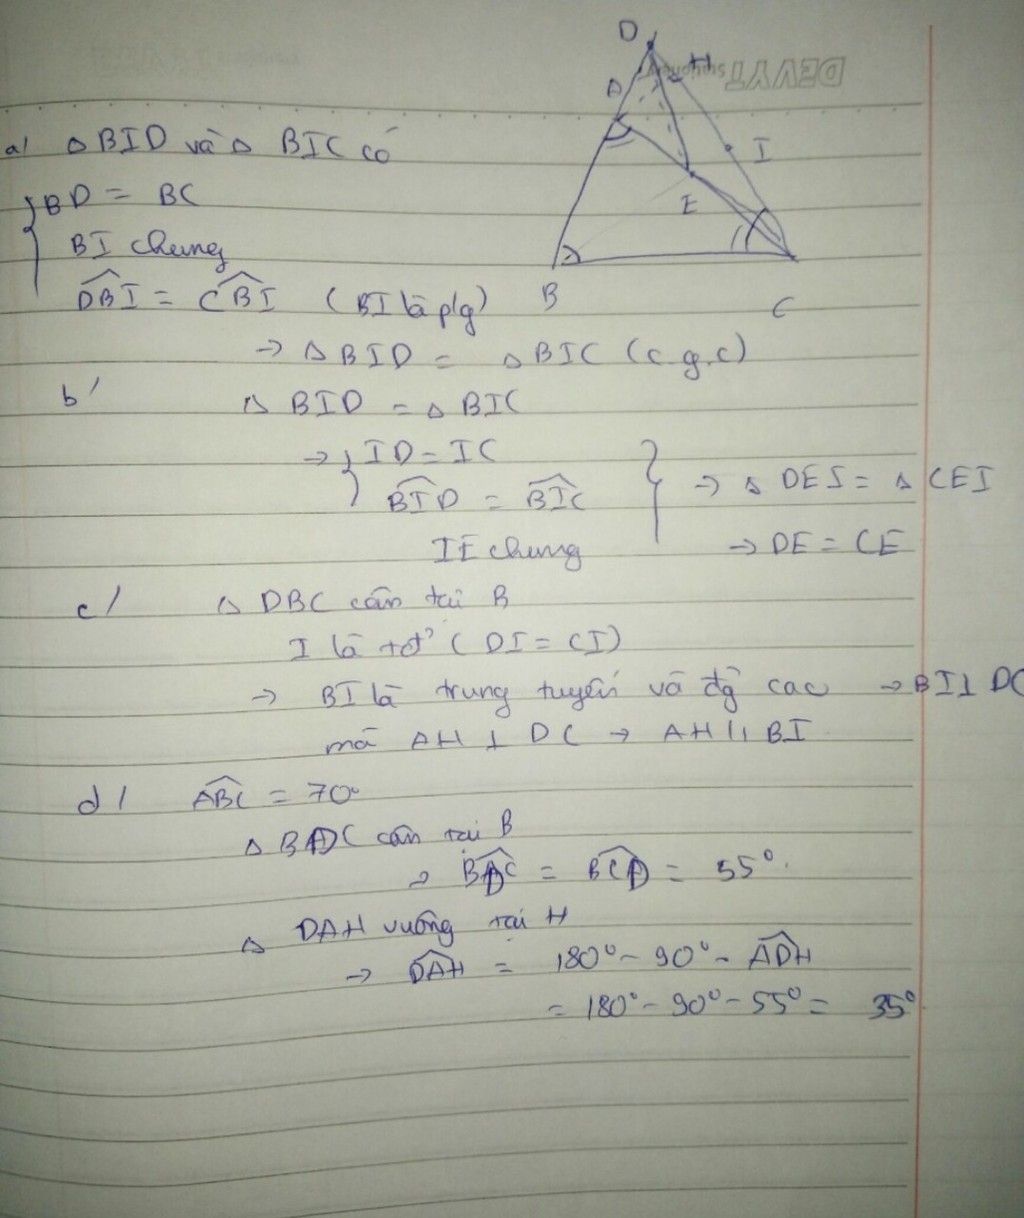 DEVYT
D
H
A
I
E
B
C
a/ △ BID và △ BIC có
BD = BC
BI chung
DBI = CBI (BI là p/g)
→ △ BID = △ BIC (c.g.c)
b/ △ BID = △ BIC
→ ID = IC
BID = BIC → △ DEI = △ CEI
IE chung → DE = CE
c/ △ DBC cân tại B
I là tđ (DI = CI)
→ BI là trung tuyến và đg cao → BI ⊥ DC
mà AH ⊥ DC → AH // BI
d/ ABC = 70°
△ BDC cân tại B
→ BDC = BCD = 55°.
△ DAH vuông tại H
→ DAH = 180° - 90° - ADH
= 180° - 90° - 55° = 35°